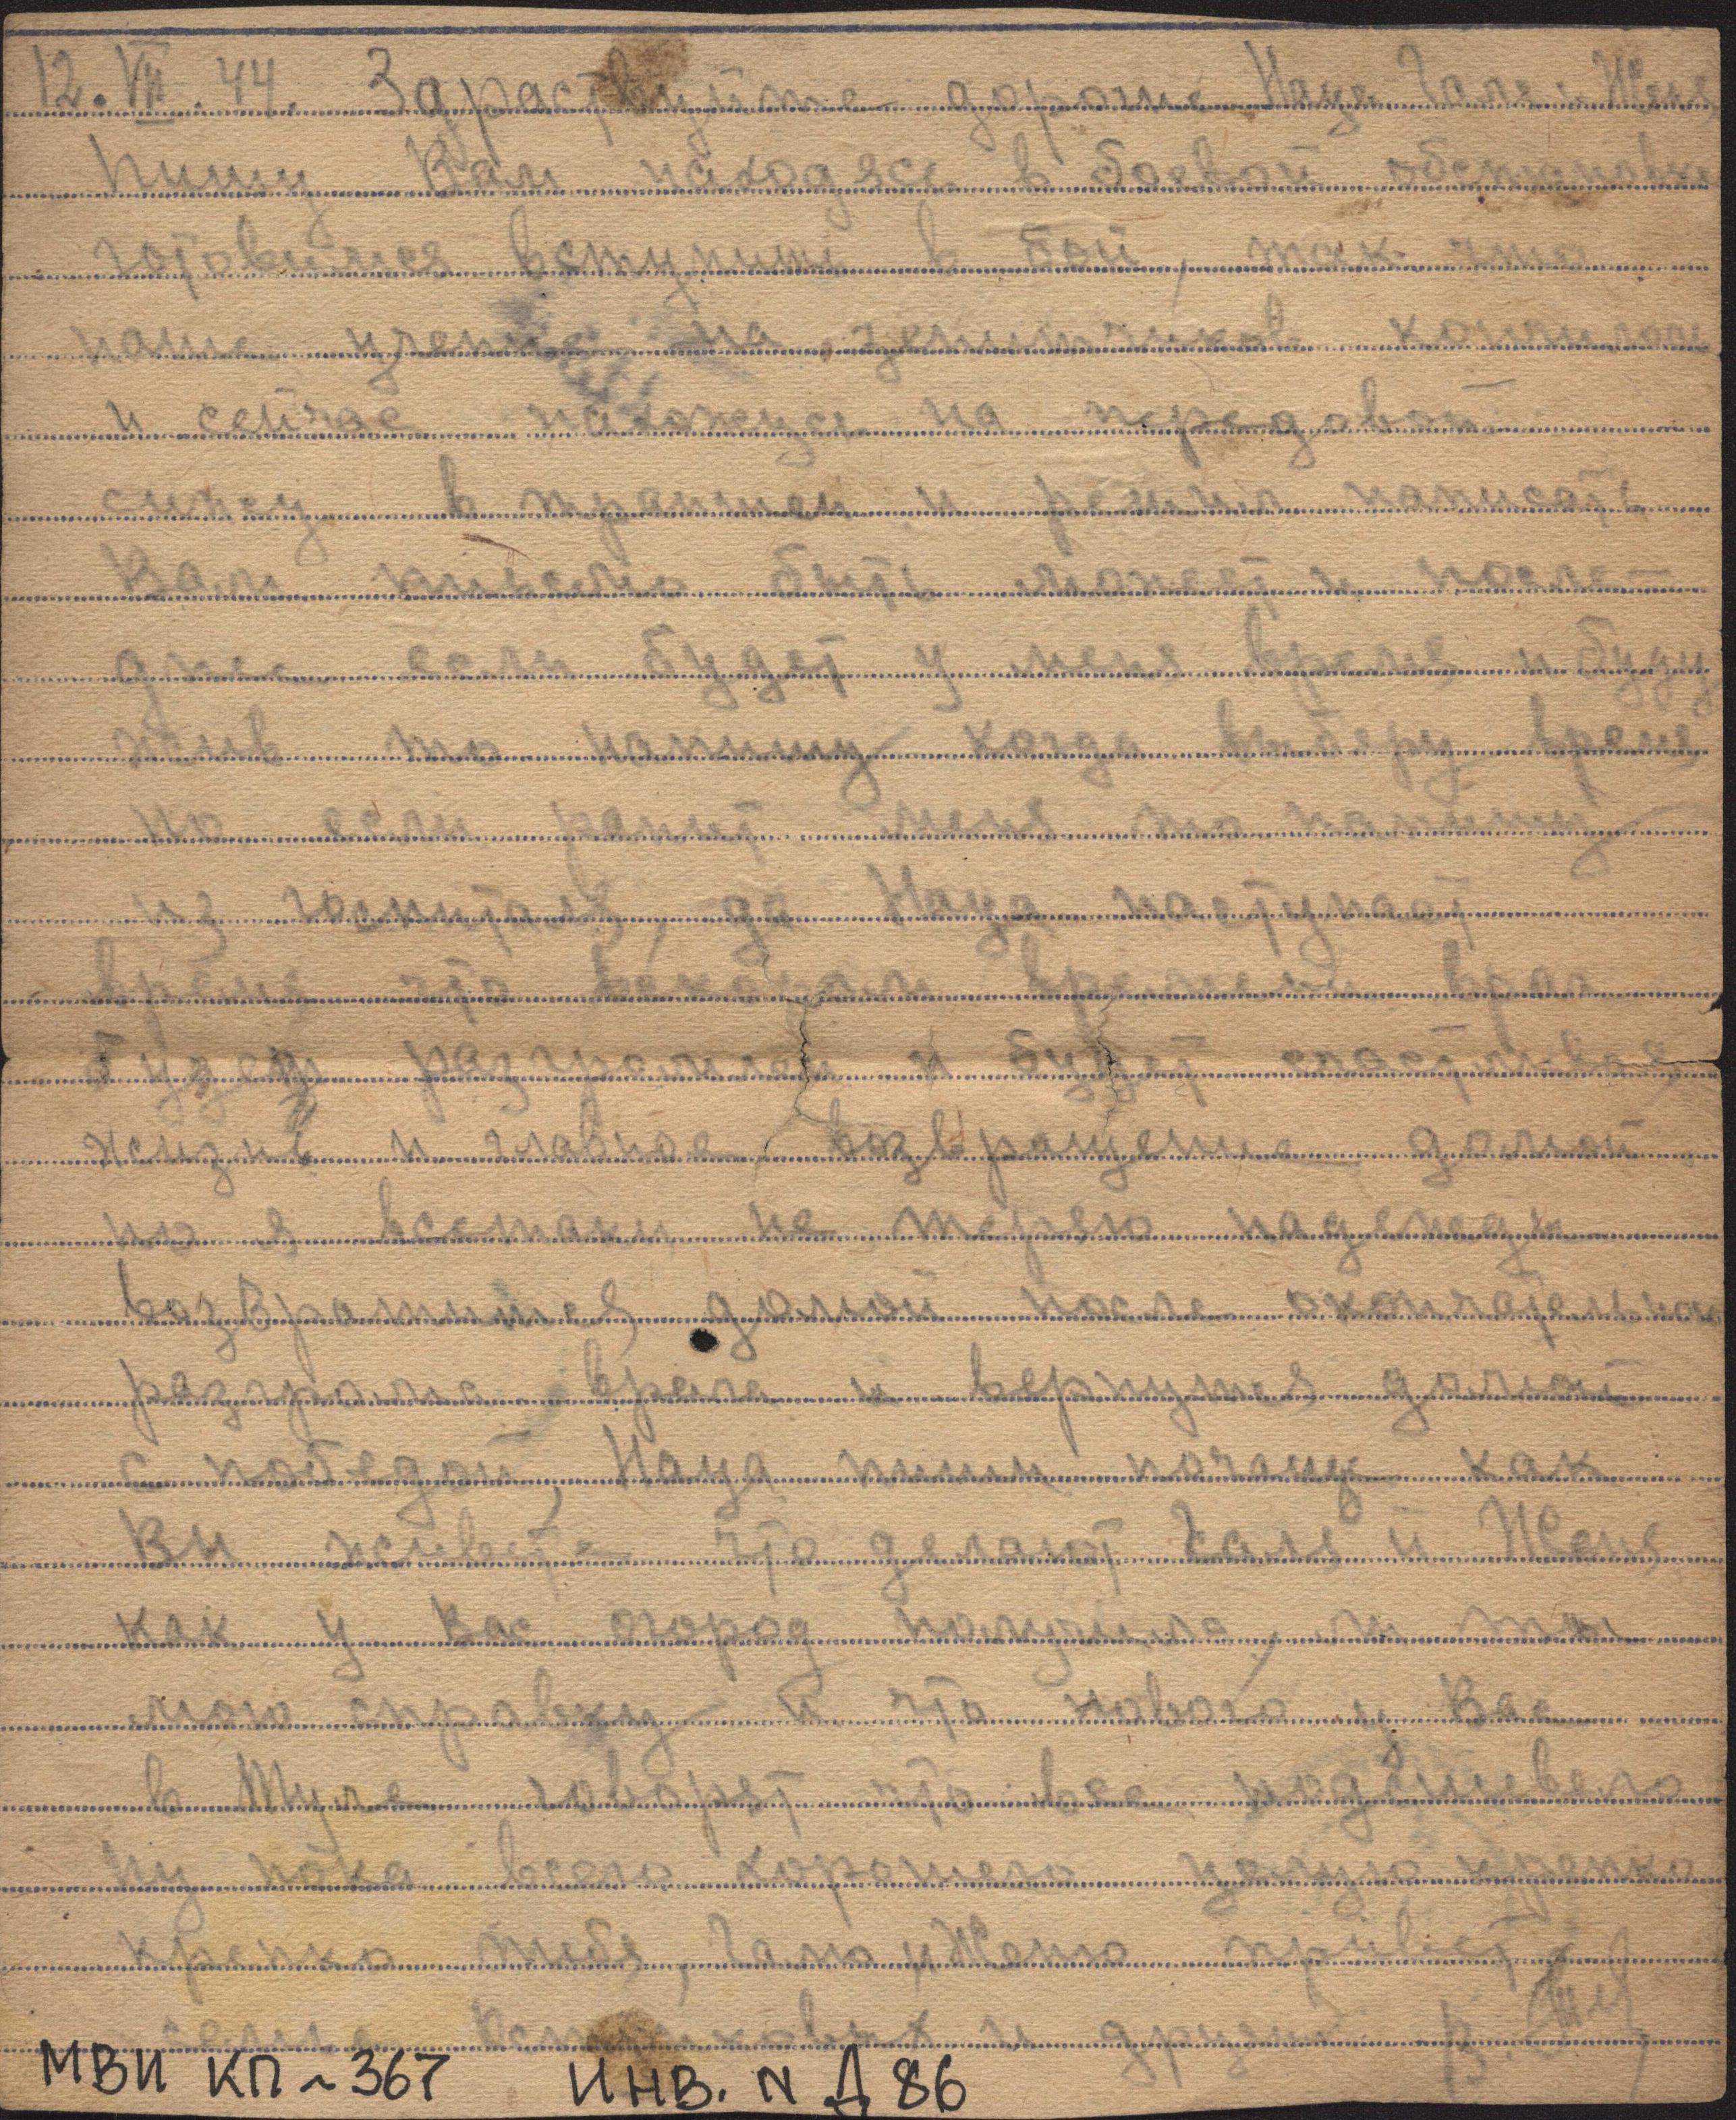 12.VII.44. Здраствуйте дорогие Надя Галя и Женя
Пишу Вам находясь в боевой обстановке
готовимся вступить в бой, так что
наше учение на зенитчиков кончилось
и сейчас нахожусь на передовой
сижу в траншеи и решил написать
Вам письмо быть может и после-
днее если будет у меня время и буду
жив то напишу когда выберу время
но если ранит меня то напишу
из госпиталя, да Надя наступает
время что вскором времени враг
будет разгромлен и будет счастливая
жизнь и главное возвращение домой
но я всетаки не теряю надежды
возвратится домой после окончательного
разгрома врага и вернутся домой
с победой, Надя пиши почащу как
Вы живете что делают Галя и Женя
как у Вас огород получила ли ты
мою справку и что нового у Вас
в Туле говорят что все подешевело
ну пока всего хорошего целую крепко
крепко тебя, Галю и Женю привет
семье и других В.
МВИ КП~367 ИНВ. N Д 86